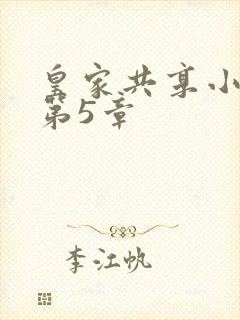 皇家共享小
第5章
李江帆